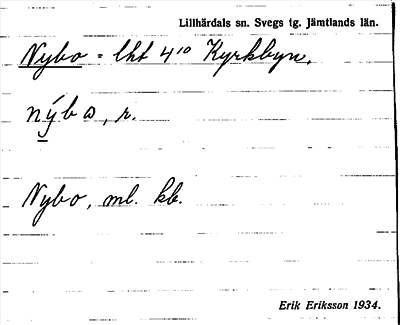 Lillhärdals sn. Svegs tg. Jämtlands län.
Nybo = lht 4¹⁰ Kyrkbyn.
nýbω, r.
Nybo, ml. kb.
Erik Eriksson 1934.